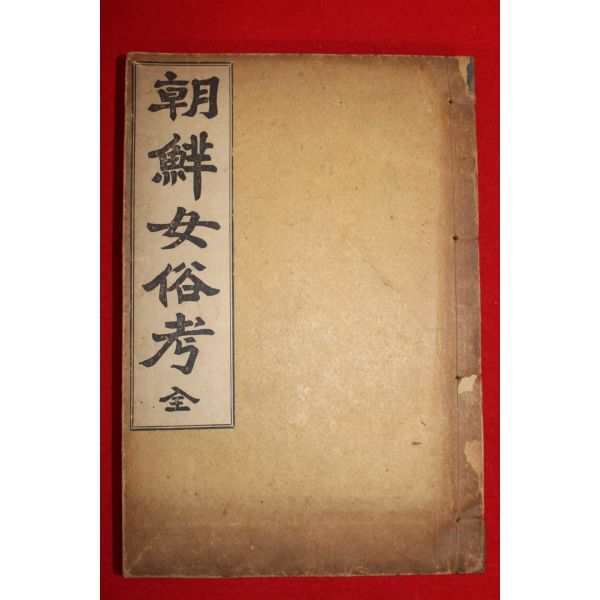 朝鮮女俗考全